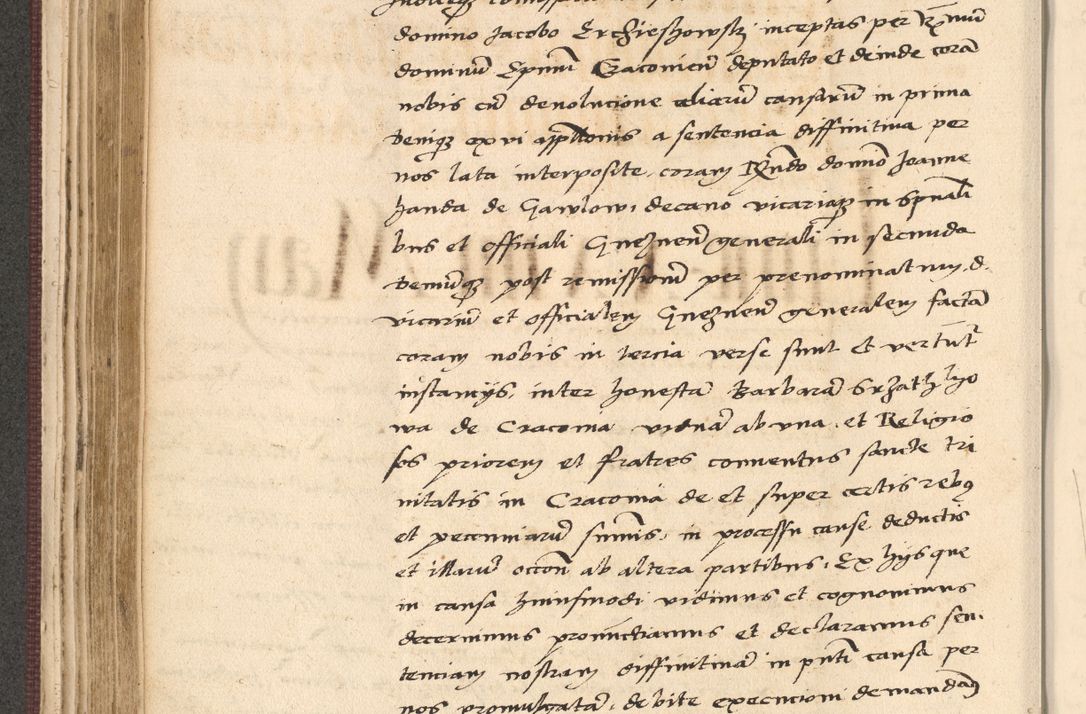 domino Jacobo Erchieshowskj inceptas per R̃mum
dominū Epm̄ Cracovień deputato et deinde corā
nobis cū devolucione aliarū causarū in prima
deniqʒ ex vi appllonis a sentencia diffinitiva per
nos lata interposite, coram Rn̄do domno Joanne
handa de Gawlow, decano vicarioqʒ in spūali
bus et officiali Gneznen̄ generali in secunda
demūqʒ post remissionē per prenominatum d.
vicariū et officialem Gneznen̄ generalem factā
coram nobis in tercia verse sunt et vertūtr
instancijs, inter honestā Barbarā Srzathlyo
wa de Cracovia viduā ab una, et Religio
sos priorem et fratres conventus sancte tri
nitatis in Cracovia de et super certis rebus
et pecuniarū summis, in processu cause deductis
et illarū occōn̄ ab altera partibus, Ex hijs que
in causa huiusmodi vidimus et cognovimus
decernimus pronūctiamus et declaramus sen
tenciam nostram diffinitivā in pn̄ti causa per
nos promulgatā, debite execucioni demandań